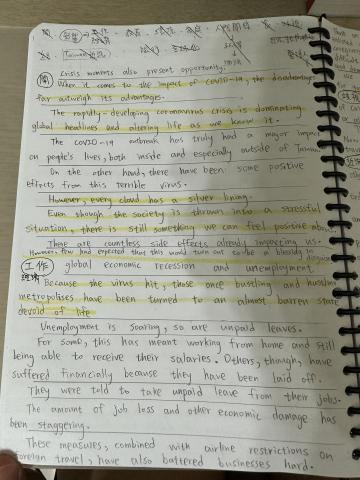 Taiwan
Crisis moments also present opportunity.
When it comes to the impact of COVID-19, the disadvantages
far outweigh its advantages.
The rapidly-developing coronavirus crisis is dominating
global headlines and altering life as we know it.
The COVID-19 outbreak has truly had a major impact
on people's lives, both inside and especially outside of Taiwan.
On the other hand, there have been some positive
effects from this terrible virus.
However, every cloud has a silver lining.
Even though the society is thrown into a stressful
situation, there is still something we can feel positive about.
There are countless side effects already impacting us.
However, few had expected that this would turn out to be a blessing in disguise
工作 global economic recession and unemployment
經濟 Because the virus hit, those once bustling and hustling
metropolises have been turned to an almost barren state
devoid of life
Unemployment is soaring, so are unpaid leaves.
For some, this has meant working from home and still
being able to receive their salaries. Others, though, have
suffered financially because they have been laid off.
They were told to take unpaid leave from their jobs.
The amount of job loss and other economic damage has
been staggering.
These measures, combined with airline restrictions on
foreign travel, have also battered businesses hard.